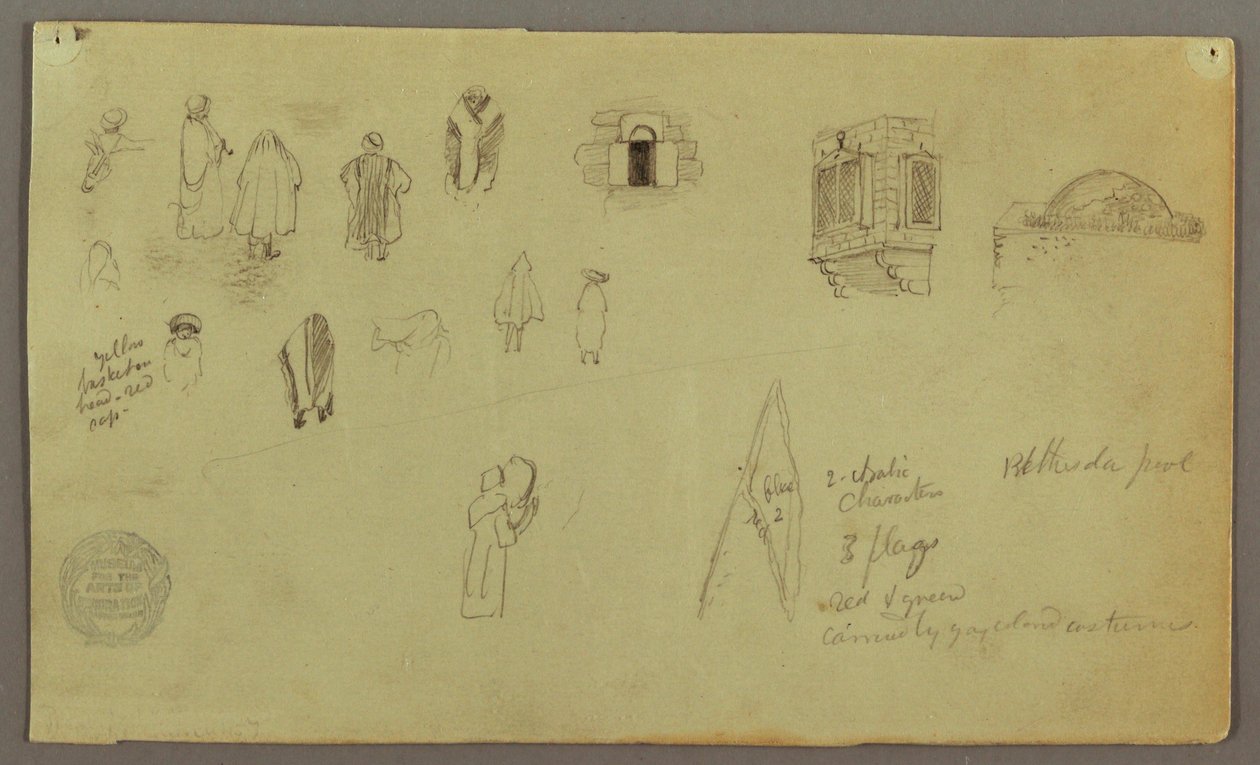 yellow
basket on
head - red
cap -
blue
red 2
2 - Arabic
Characters
3 flags
red & green
carried by gay colored costumes.
Bethesda pool
MUSEUM
FOR THE
ARTS OF
DECORATION